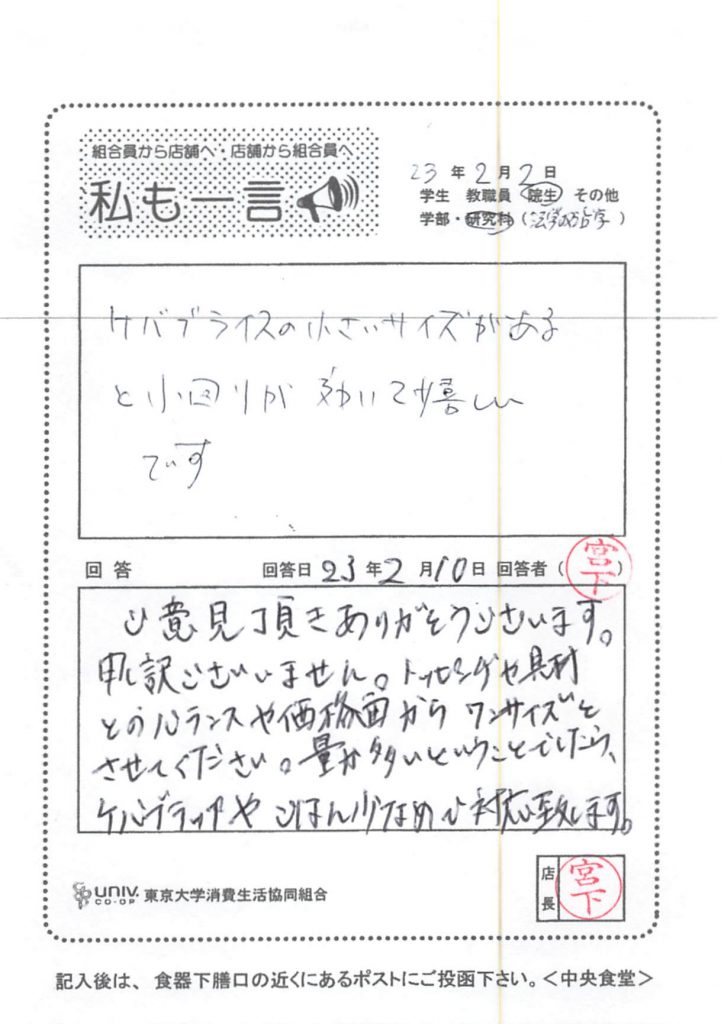 組合員から店舗へ・店舗から組合員へ
私も一言
23年2月2日
学生 教職員 院生 その他
学部・研究科(法学政治学)
ケバブライスの小さいサイズがある
と小回りが効いて嬉しい
です
回答 回答日 23年2月10日 回答者(宮下)
ご意見頂きありがとうございます。
申し訳ございません。トッピングや具材
とのバランスや価格面からワンサイズと
させてください。量が多いということでしたら、
ケバブラップやごはん少なめで対応致します。
UNIV. CO-OP 東京大学消費生活協同組合
店長 宮下
記入後は、食器下膳口の近くにあるポストにご投函下さい。<中央食堂>